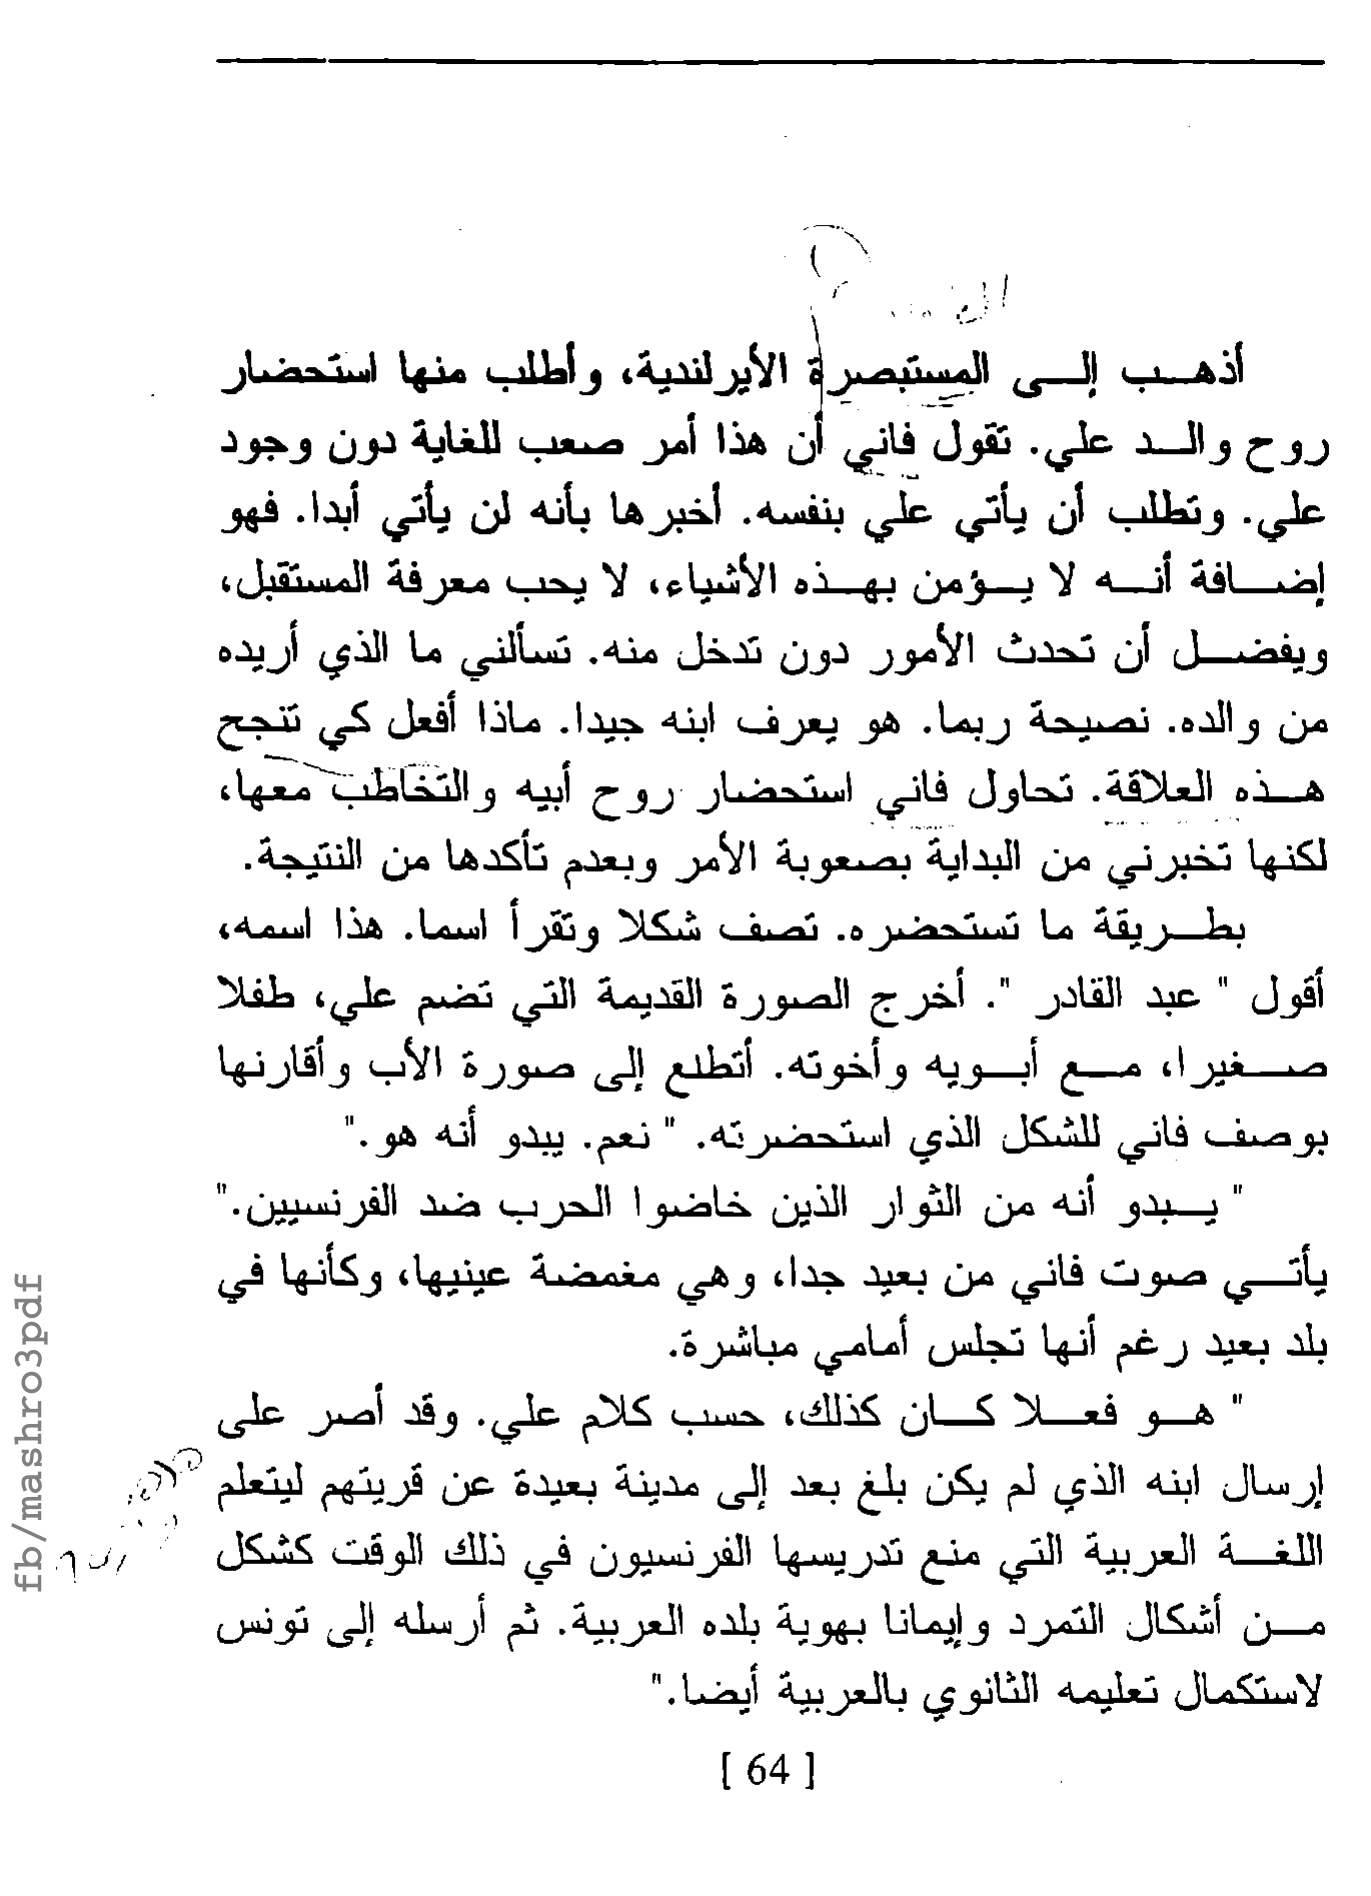 أذهب إلى المستبصرة الأيرلندية، وأطلب منها استحضار
روح والد علي. تقول فاني أن هذا أمر صعب للغاية دون وجود
علي. وتطلب أن يأتي علي بنفسه. أخبرها بأنه لن يأتي أبدا. فهو
إضافة أنه لا يؤمن بهذه الأشياء، لا يحب معرفة المستقبل،
ويفضل أن تحدث الأمور دون تدخل منه. تسألني ما الذي أريده
من والده. نصيحة ربما. هو يعرف ابنه جيدا. ماذا أفعل كي تنجح
هذه العلاقة. تحاول فاني استحضار روح أبيه والتخاطب معها،
لكنها تخبرني من البداية بصعوبة الأمر وبعدم تأكدها من النتيجة.
بطريقة ما تستحضره. تصف شكلا وتقرأ اسما. هذا اسمه،
أقول " عبد القادر ". أخرج الصورة القديمة التي تضم علي، طفلا
صغيرا، مع أبويه وأخوته. أتطلع إلى صورة الأب وأقارنها
بوصف فاني للشكل الذي استحضرته. " نعم. يبدو أنه هو."
" يبدو أنه من الثوار الذين خاضوا الحرب ضد الفرنسيين."
يأتي صوت فاني من بعيد جدا، وهي مغمضة عينيها، وكأنها في
بلد بعيد رغم أنها تجلس أمامي مباشرة.
" هو فعلا كان كذلك، حسب كلام علي. وقد أصر على
إرسال ابنه الذي لم يكن بلغ بعد إلى مدينة بعيدة عن قريتهم ليتعلم
اللغة العربية التي منع تدريسها الفرنسيون في ذلك الوقت كشكل
من أشكال التمرد وإيمانا بهوية بلده العربية. ثم أرسله إلى تونس
لاستكمال تعليمه الثانوي بالعربية أيضا."
[ 64 ]
fb/mashro3pdf